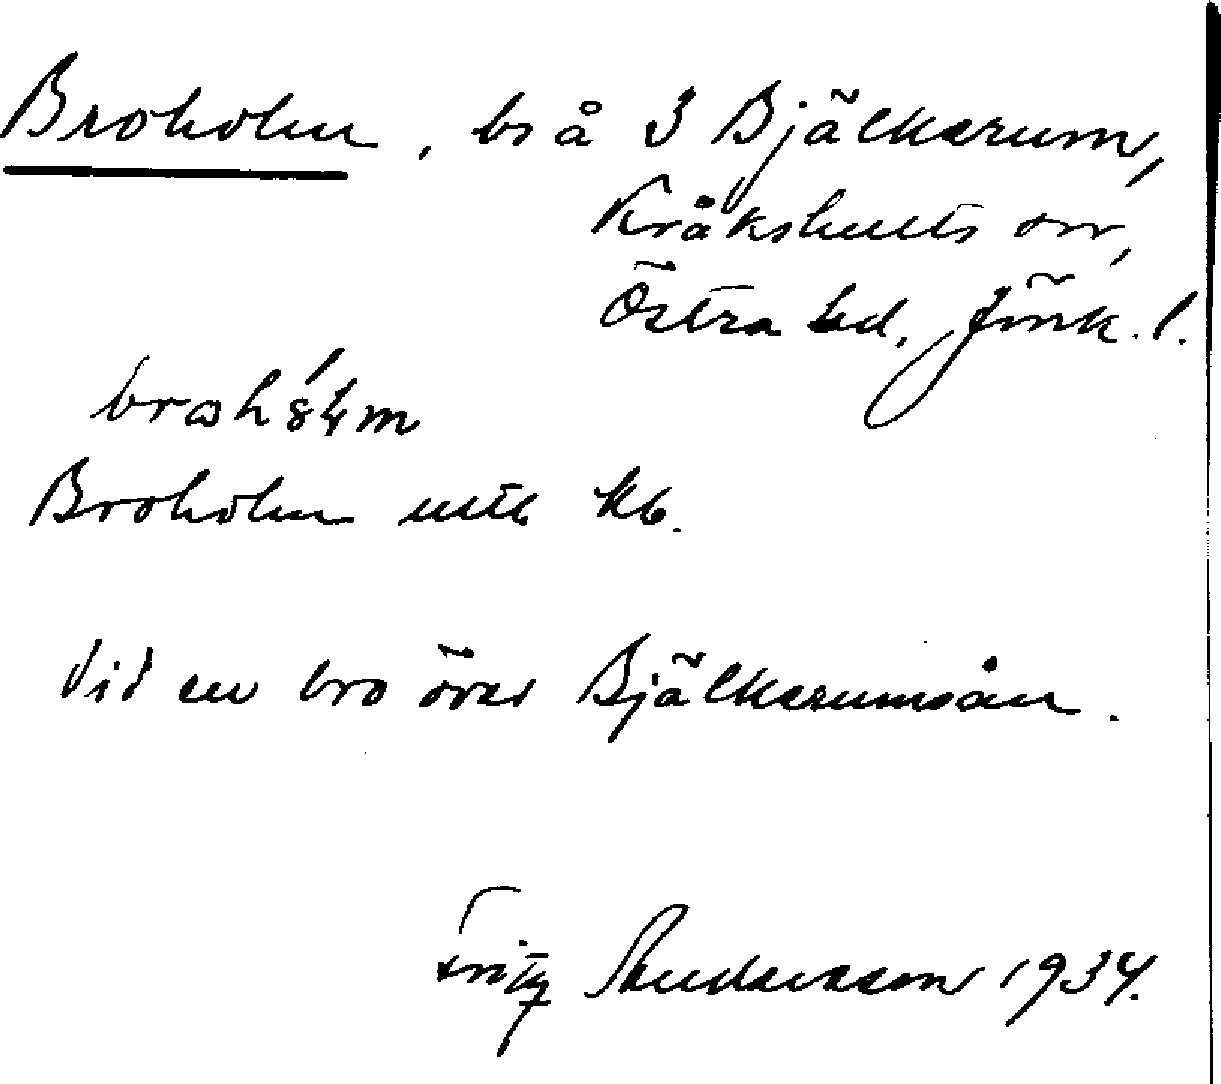 Broholm, bs å 3 Bjälkerum,
Kråkshults sn,
Östra hd, Jönk. l.
Broholm utt. Kb.
Vid en bro över Bjälkerumsån.
Fritz 1934.